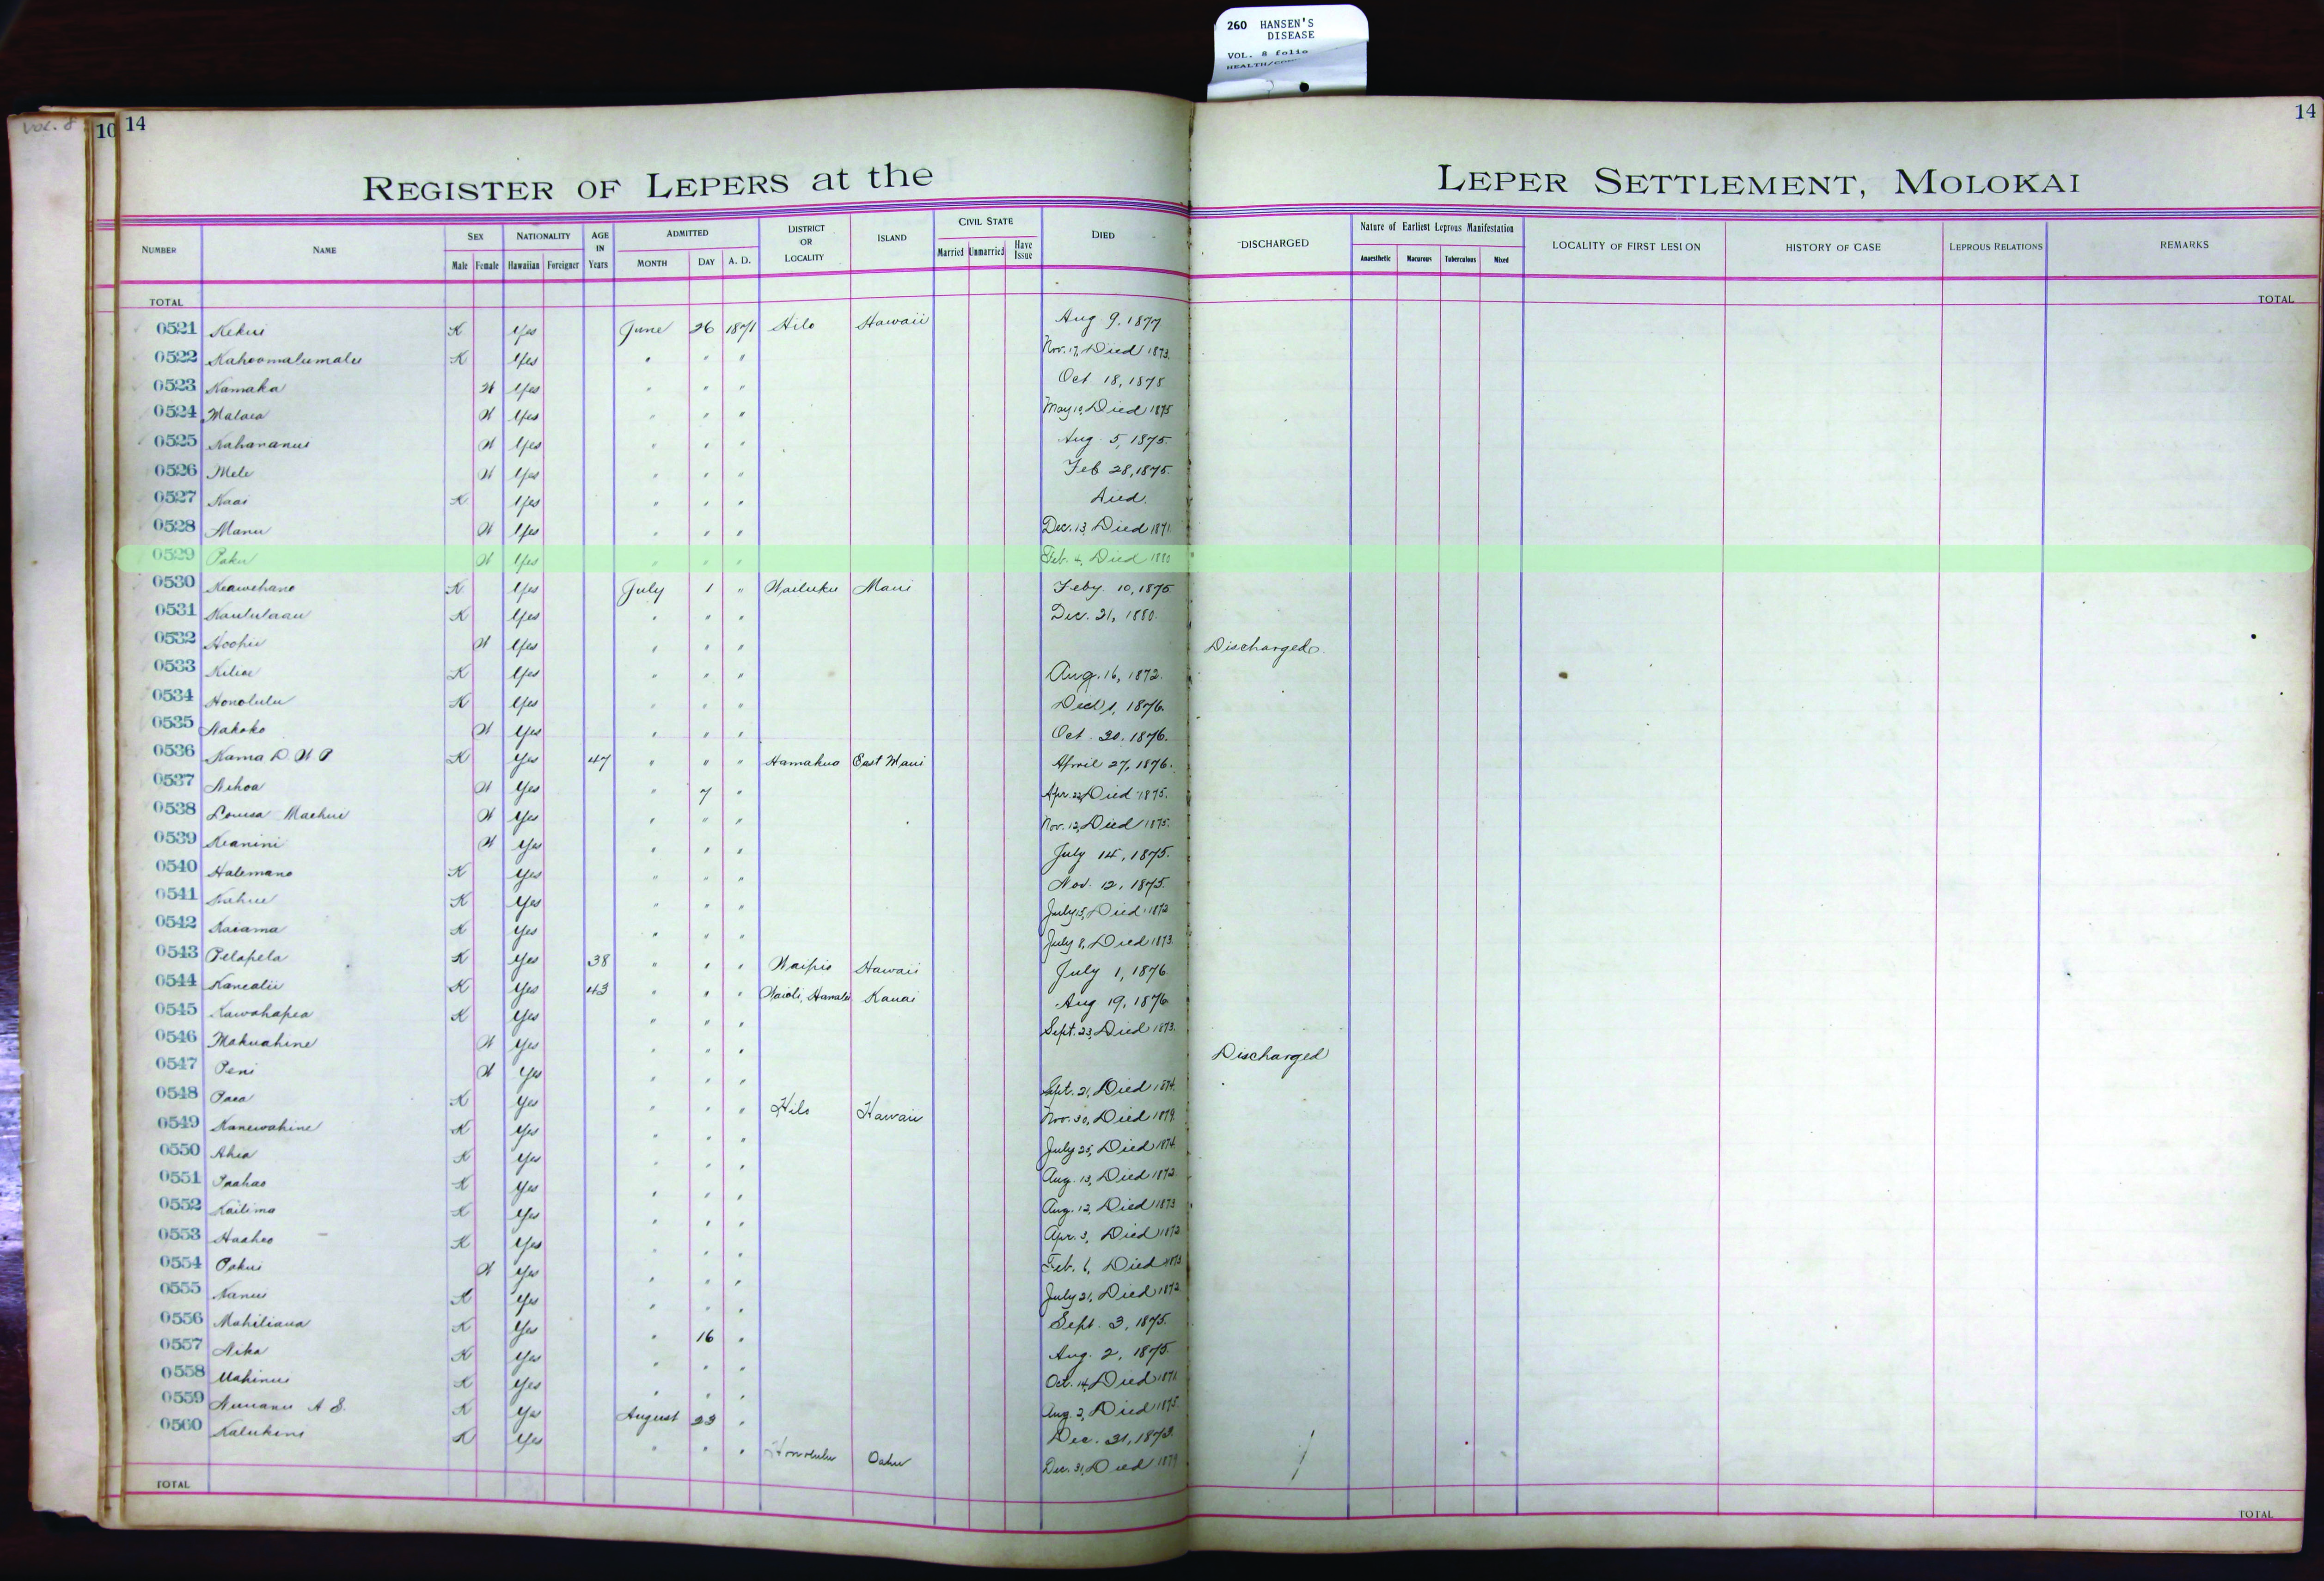 260 HANSEN'S
DISEASE
VOL. 8 folio
VOL. 8
10 14
14
REGISTER OF LEPERS at the LEPER SETTLEMENT, MOLOKAI
NUMBER NAME SEX Male Female NATIONALITY Hawaiian Foreigner AGE IN Years ADMITTED MONTH DAY A. D. DISTRICT OR LOCALITY ISLAND CIVIL STATE Married Unmarried Have Issue DIED DISCHARGED Nature of Earliest Leprous Manifestation Anaesthetic Macurous Tuberculous Mixed LOCALITY OF FIRST LESION HISTORY OF CASE LEPROUS RELATIONS REMARKS
TOTAL TOTAL
0521 Kekui K Yes June 26 1871 Hilo Hawaii Aug 9, 1877
0522 Kahoomalumalu K Yes " " " Nov. 17, Died 1873.
0523 Kamaka W Yes " " " Oct 18, 1875
0524 Malaea W Yes " " " May 19, Died 1875
0525 Kahananui W Yes " " " Aug. 5, 1875.
0526 Mele W Yes " " " Feb 28, 1875.
0527 Kaai K Yes " " " Died.
0528 Manu W Yes " " " Dec. 13, Died 1871
0529 Paku W Yes " " " Feb. 4, Died 1880
0530 Keawehano K Yes July 1 " Wailuku Maui Feby 10, 1875
0531 Kaululaau K Yes " " " Dec. 21, 1880.
0532 Hoohii W Yes " " " Discharged.
0533 Kiliae K Yes " " " Aug. 16, 1872.
0534 Honolulu K Yes " " " 1, 1876.
0535 Nakoko W Yes " " " Oct. 20, 1876.
0536 Kama D. W P K Yes 47 " " " Hamakua East Maui April 27, 1876.
0537 Nihoa W Yes " 7 " Apr. 22, Died 1875.
0538 Louisa Maehui W Yes " " " Nov. 12, Died 1875.
0539 Keanini W Yes " " " July 14, 1875.
0540 Halemano K Yes " " " Nov. 12, 1875.
0541 Kahue K Yes " " " July 15, Died 1872
0542 Kaiama K Yes " " " July 8, Died 1873.
0543 Pelapela K Yes 38 " " " Waipio Hawaii July 1, 1876
0544 Kanealii K Yes 43 " " " Waioli, Hanalei Kauai Aug 19, 1876
0545 Kawahapea K Yes " " " Sept. 23, Died 1873.
0546 Makuahine W Yes " " " Discharged
0547 Peni W Yes " " " Sept. 21, Died 1874.
0548 Paea K Yes " " " Hilo Hawaii Nov. 30, Died 1879.
0549 Kanewahine K Yes " " " July 25, Died 1874.
0550 Ahia K Yes " " " Aug. 13, Died 1872.
0551 Paahao K Yes " " " Aug. 12, Died 1873
0552 Kailima K Yes " " " Apr. 3, Died 1872
0553 Haaheo K Yes " " " Feb. 6, Died 1873
0554 Pakui W Yes " " " July 21, Died 1872
0555 Nanui K Yes " " " Sept. 3, 1875.
0556 Mahiliana K Yes " 16 " Aug. 2, 1875.
0557 Nika K Yes " " " Oct. 14, Died 1871
0558 Mahinui K Yes " " " Aug. 2, Died 1875.
0559 Nuuanu A S. K Yes August 23 " Dec. 31, 1873.
0560 Kalukini K Yes " " " Honolulu Oahu Dec. 31, Died 1879
TOTAL TOTAL